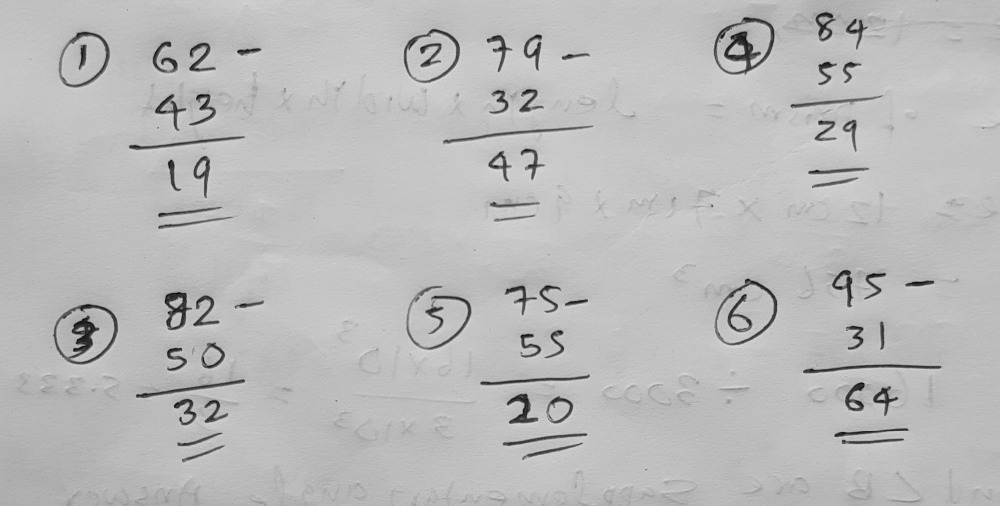 ① 62 -
43
19
② 79 -
32
47
④ 84
55
29
③ 82 -
50
32
⑤ 75 -
55
20
⑥ 95 -
31
64